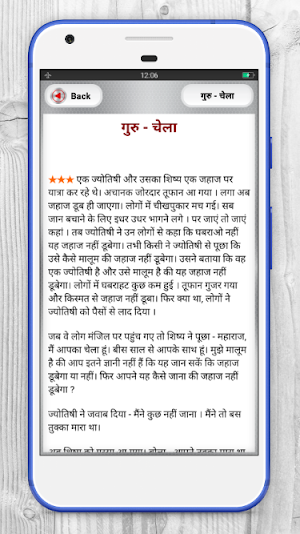 12:06
Back
गुरु - चेला
गुरु - चेला
★★★ एक ज्योतिषी और उसका शिष्य एक जहाज पर
यात्रा कर रहे थे। अचानक जोरदार तूफान आ गया । लगा अब
जहाज डूब ही जाएगा। लोगों में चीखपुकार मच गई। सब
जान बचाने के लिए इधर उधर भागने लगे । पर जाएं तो जाएं
कहां । तब ज्योतिषी ने उन लोगों से कहा कि घबराओ नहीं
यह जहाज नहीं डूबेगा। तभी किसी ने ज्योतिषी से पूछा कि
उसे कैसे मालूम की जहाज नहीं डूबेगा। उसने बताया कि वह
एक ज्योतिषी है और उसे मालूम है की यह जहाज नहीं
डूबेगा। लोगों में घबराहट कुछ कम हुई । तूफान गुजर गया
और किस्मत से जहाज नहीं डूबा। फिर क्या था, लोगों ने
ज्योतिषी को पैसों से लाद दिया ।
जब वे लोग मंजिल पर पहुंच गए तो शिष्य ने पूछा - महाराज,
मैं आपका चेला हूं। बीस साल से आपके साथ हूं। मुझे मालूम
है की आप इतने ज्ञानी नहीं हैं कि यह जान सकें कि जहाज
डूबेगा या नहीं। फिर आपने यह कैसे जाना की जहाज नहीं
डूबेगा ?
ज्योतिषी ने जवाब दिया - मैंने कुछ नहीं जाना । मैंने तो बस
तुक्का मारा था।
अब शिष्य को गुस्सा आ गया। बोला - आपने तुक्का मारा था